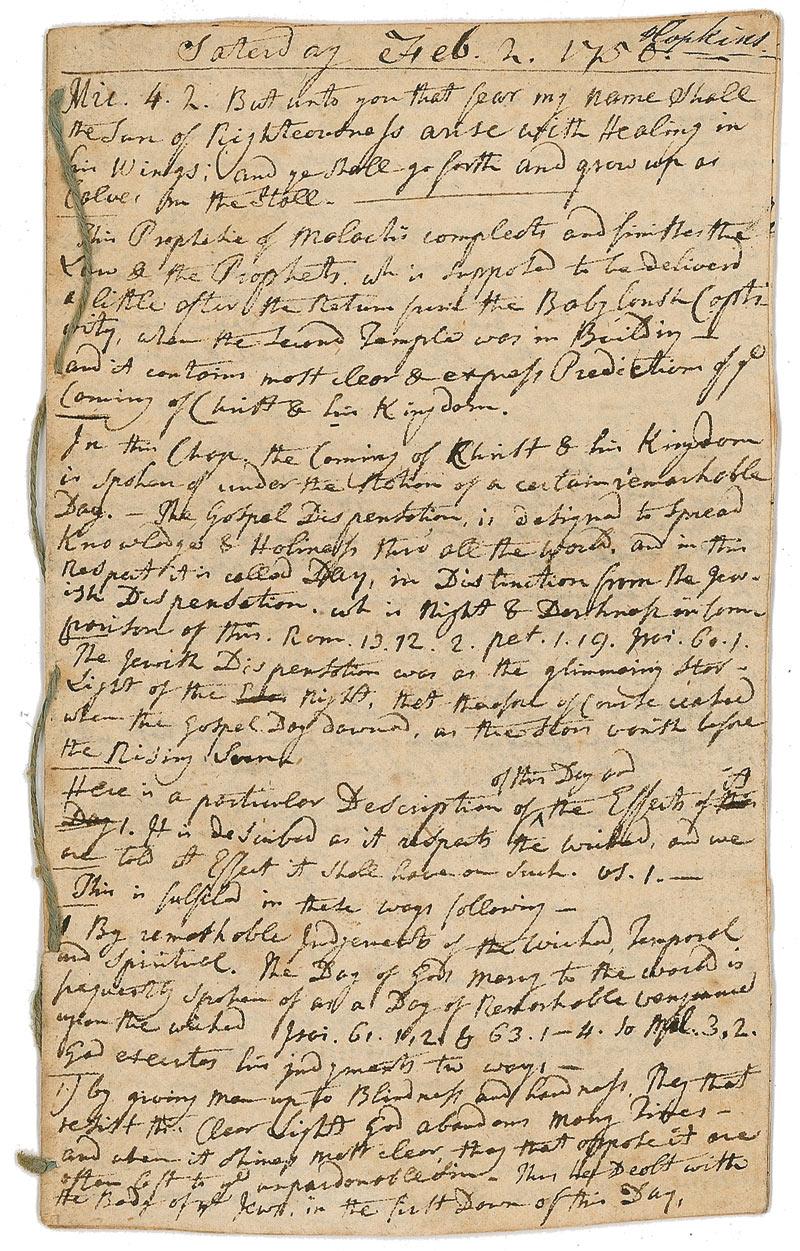 Saterday Feb. 2. 1756. Hopkins.
4. 2. But unto you that fear my name Shall
the Sun of Righteousness arise with Healing in
his Wings; and ye shall go forth and grow up as
Calves in the Stall.
This Prophesie of Malachi compleats and finishes the
Law & the Prophets. wh is supposed to be deliverd
a little after the Return from the Babylonish Capti
vity, when the Second Temple was in Building —
and it contains most clear & express Predictions of ye
Coming of Christ & his Kingdom.
In this Chap. the Coming of Christ & his Kingdom
is spoken of under the Notion of a certain remarkable
Day. — The Gospel Dispensation, is designed to Spread
Knowledge & Holiness thro all the world. and in this
Respect it is called Day, in Distinction from the Jew-
ish Dispensation. wh is Night & Darkness in Com-
parison of this. Rom. 13. 12. 2. pet. 1. 19. Isai. 60. 1.
The Jewish Dispensation was as the glimmering Star-
Light of the Night, that therefore of Course ceased
when the Gospel Day dawned, as the Stars vanish before
the Rising Sun
of this Day and
Here is a particular Description of ^ the Effects of it
Day 1. It is described as it respects the wicked, and we
are told Effect it shall have on such. vs. 1. —
This is fulfiled in these ways following —
1 By remarkable Judgements of the Wicked, Temporal
and Spiritual. The Day of Gods mercy to the world is
frequently spoken of as a Day of Remarkable vengeance
upon the wicked Isai. 61. 1, 2. & 63. 1—4. So Mal. 3, 2.
God executes his judgments two ways, —
1) by giving men up to Blindness and hardness. They that
resist the Clear Light God abandons many Times —
and when it shines most clear, they that oppose it are
often left to ye unpardonable sin. Thus he Dealt with
the Body of ye Jews. in the first Dawn of this Day.